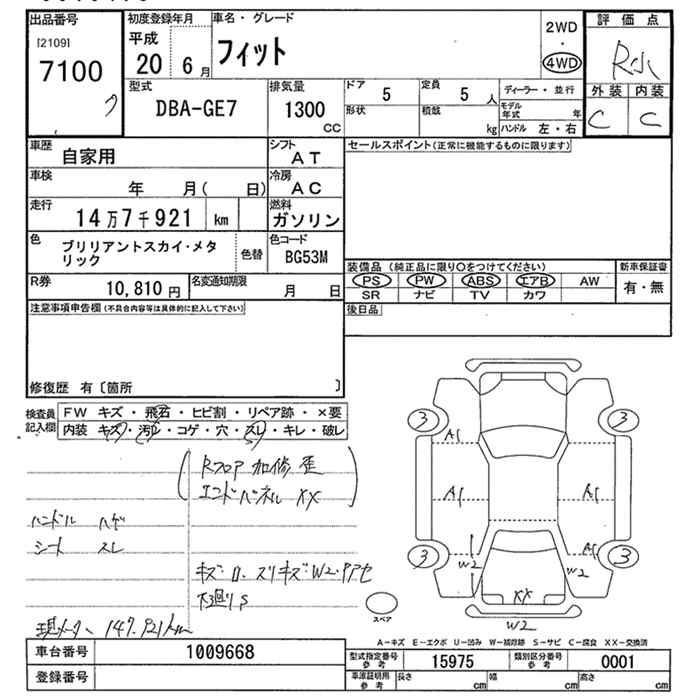 出品番号
[2109]
7100
初度登録年月
平成
20 6月
車名・グレード
フィット
2WD
・
4WD
評価点
R小
外装 内装
C C
型式
DBA-GE7
排気量
1300
CC
ドア 5
定員 5 人
形状
積載 kg
ディーラー・並行
モデル年式 年
ハンドル 左・右
車歴
自家用
シフト
AT
車検
年 月( 日)
冷房
AC
走行
14万7千921 km
燃料
ガソリン
色
ブリリアントスカイ・メタリック
色替
色コード
BG53M
R券
10,810円
名変通知期限
月 日
セールスポイント(正常に機能するものに限ります)
装備品 (純正品に限り〇をつけてください)
PS PW ABS エアB AW
SR ナビ TV カワ
新車保証書
有・無
後日品
注意事項申告欄(不具合内容等は具体的に記入して下さい)
修復歴 有〔箇所 〕
検査員記入欄
FW キズ・飛石・ヒビ割・リペア跡・×要
内装 キズ・汚レ・コゲ・穴・スレ・キレ・破レ
Rフロア 加修 歪
エンドパネル XX
ハンドル ハゲ
シート スレ
キズ ロ. スリキズ W2・アアセ
下廻りS
現メーター 147.921km
3
3
A1
A1
A1
3
3
W2
A1
W2
XX
W2
スペア
A-キズ E-エクボ U-凹み W-補修跡 S-サビ C-腐食 XX-交換済
車台番号
1009668
登録番号
型式指定番号 参考
15975
類別区分番号 参考
0001
車庫証明用 参考
長さ cm
幅 cm
高さ cm